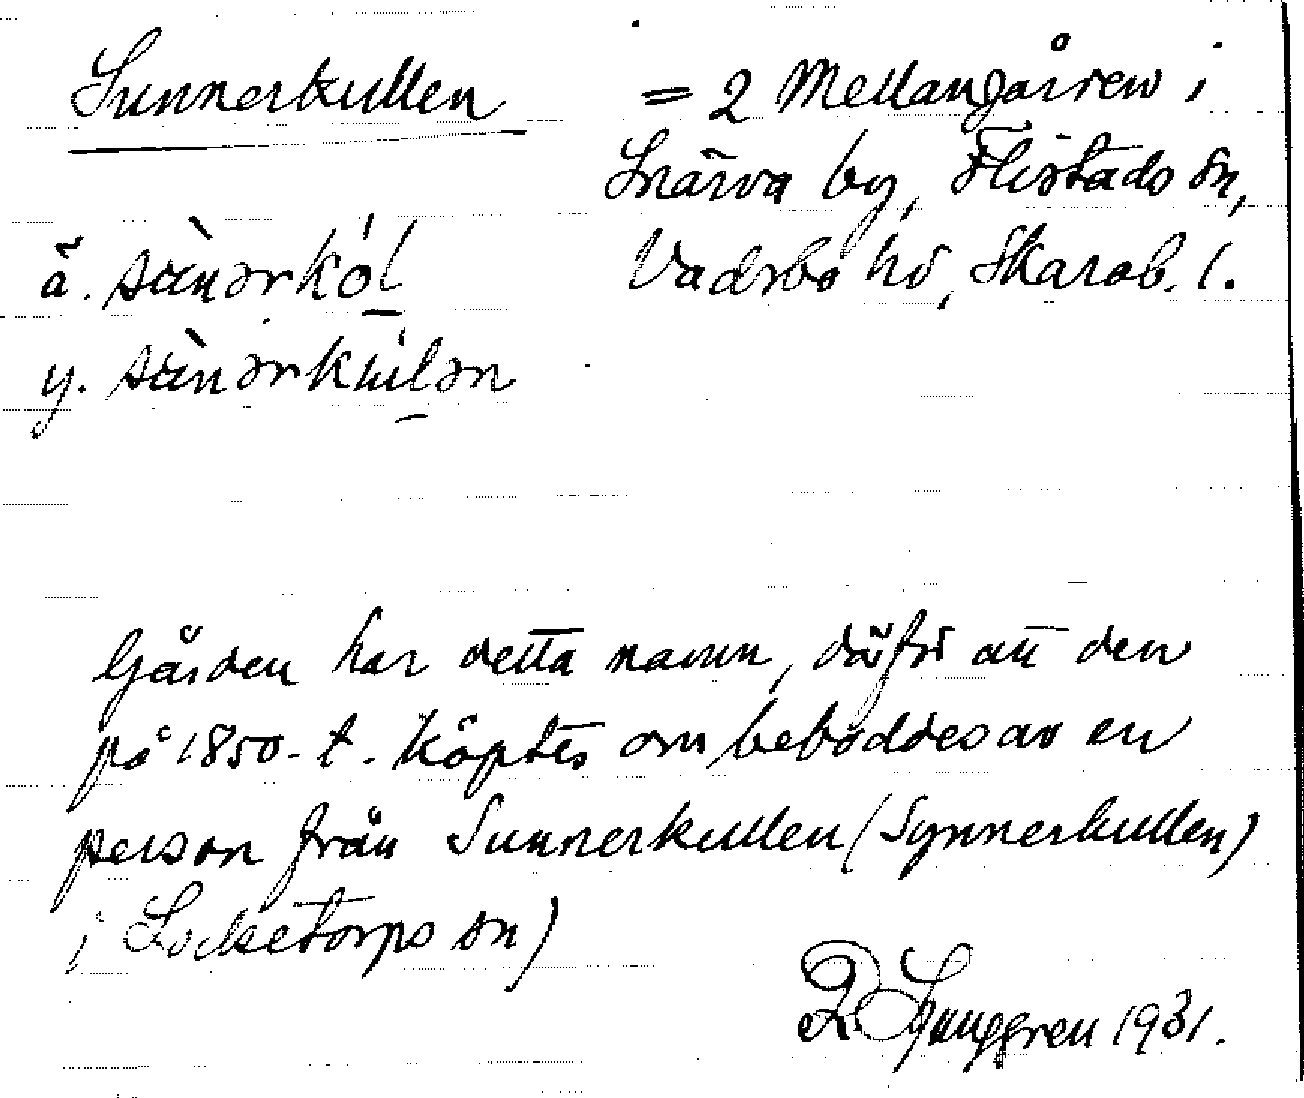 Sunnerkullen = 2 Mellangården i
Snärva by, Flistads sn,
ä. sùnərkól Vadsbo hd, Skarab. l.
y. sùnərkúlən
Gården har detta namn, därför att den
på 1850-t. köptes om beboddes av en
person från Sunnerkullen (Synnerkullen)
i Locketorps sn)
R Ljunggren 1931.